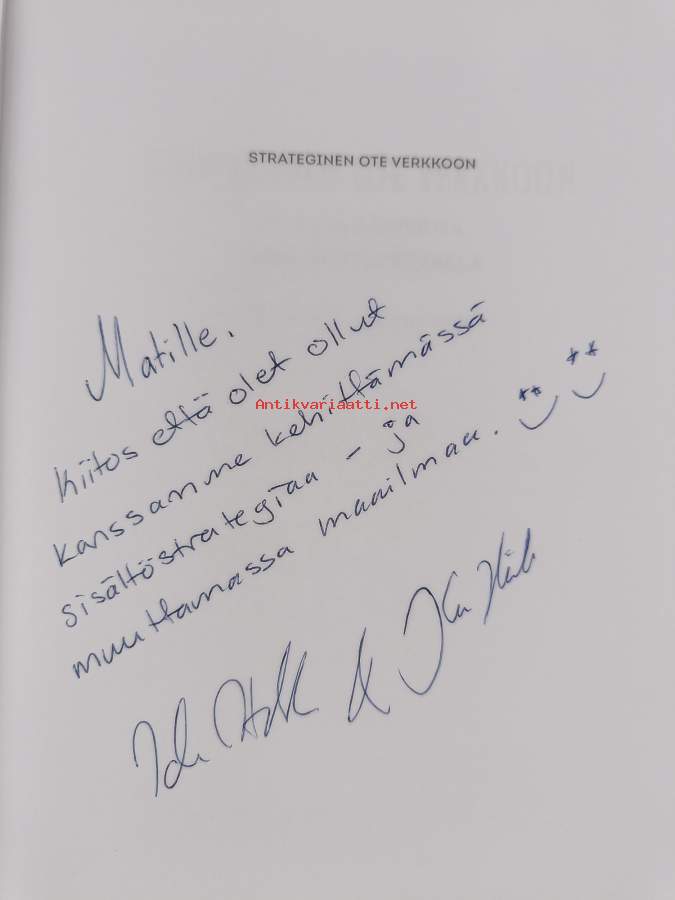 STRATEGINEN OTE VERKKOON
Matille.
Kiitos että olet ollut
Antikvariaatti.net
kanssamme kehittämässä
sisältöstrategiaa - ja
muuttamassa maailmaa.
&